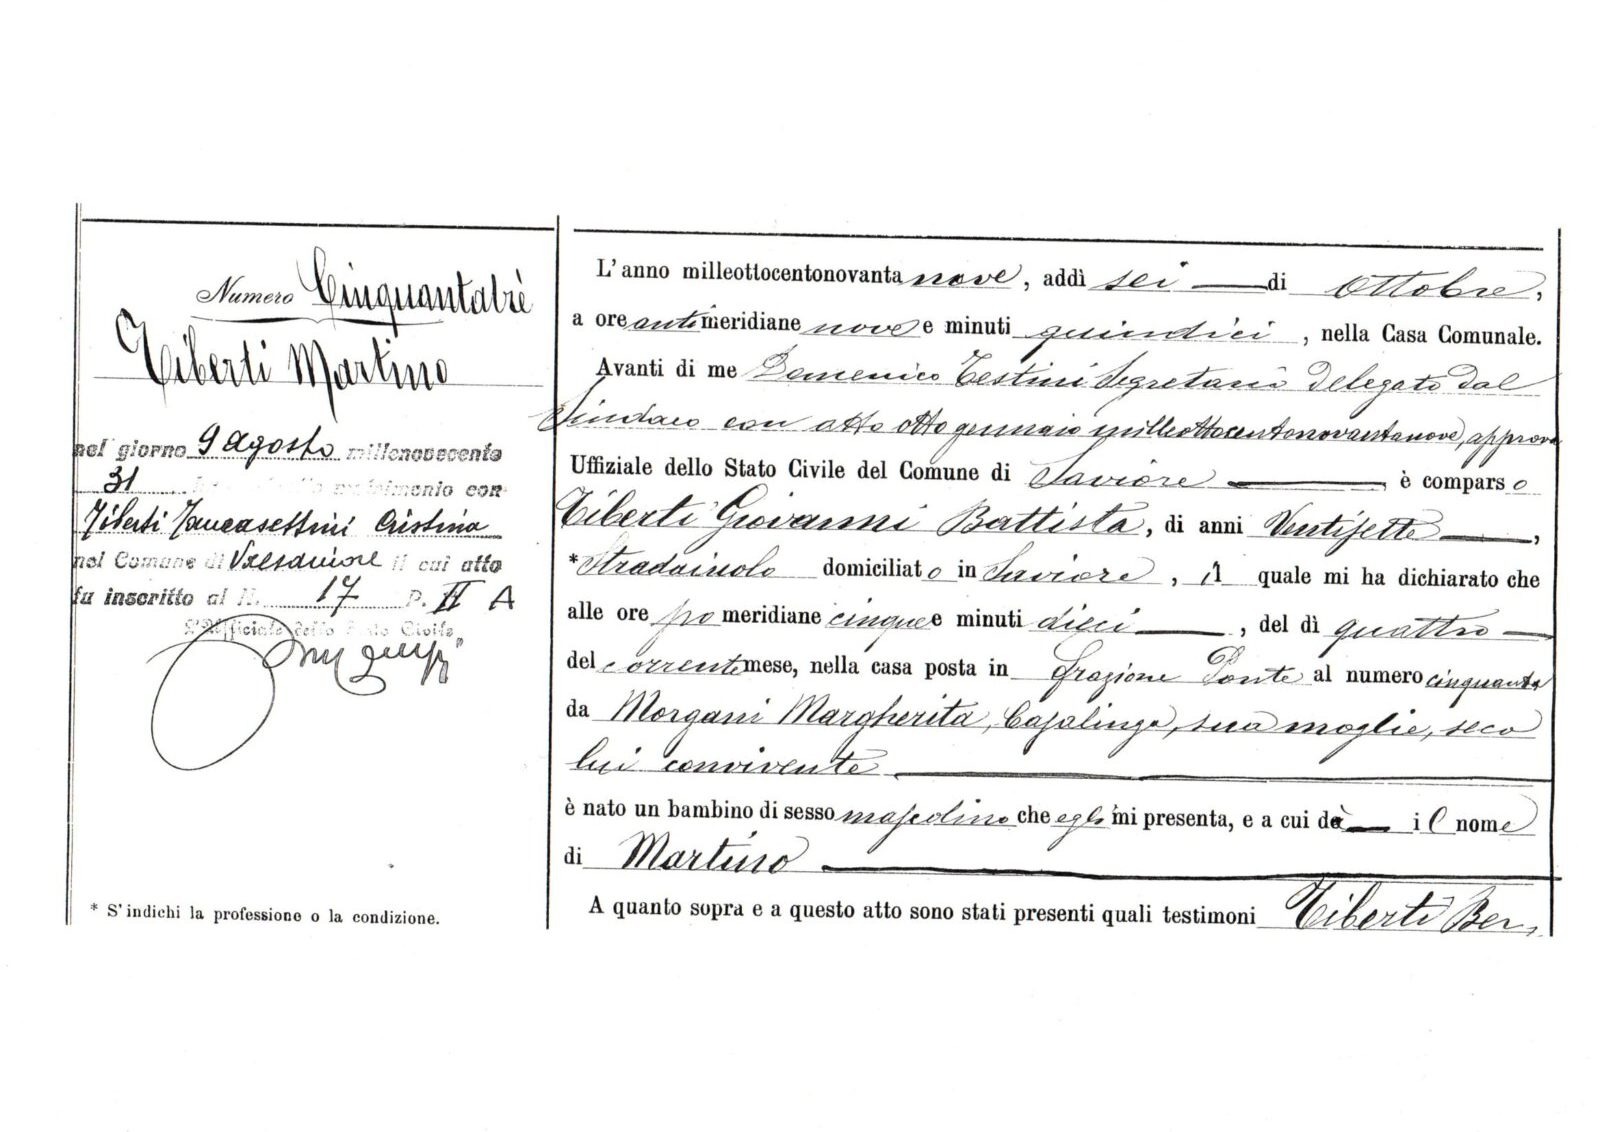 Numero Cinquantatrè
Tiberti Martino
nel giorno 9 agosto millenovecento
31 matrimonio con
Tiberti Zancasettini Cristina
nel Comune di Valsaviore il cui atto
fu inscritto al N. 17 P. II A
L'Ufficiale dello Stato Civile
* S'indichi la professione o la condizione.
L'anno milleottocentonovanta nove, addì sei di Ottobre,
a ore antimeridiane nove e minuti quindici, nella Casa Comunale.
Avanti di me Domenico Testini Segretario Delegato dal
Sindaco con atto otto gennaio milleottocentonovantanove, approva
Uffiziale dello Stato Civile del Comune di Saviore è comparso
Tiberti Giovanni Battista, di anni Ventisette,
*Stradaiuolo domiciliato in Saviore, il quale mi ha dichiarato che
alle ore pomeridiane cinque e minuti dieci, del dì quattro
del corrente mese, nella casa posta in Frazione Ponte al numero cinquanta
da Morgani Margherita, Casalinga, sua moglie, seco
lui convivente
è nato un bambino di sesso mascolino che egli mi presenta, e a cui dà il nome
di Martino
A quanto sopra e a questo atto sono stati presenti quali testimoni Tiberti Ber